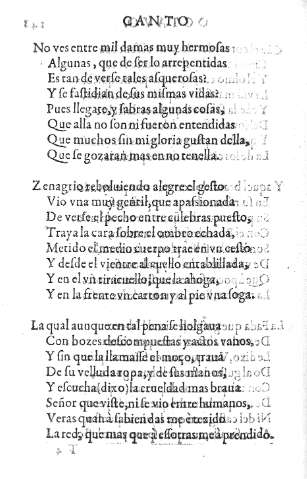 CANTO
No ves entre mil damas muy hermosas
Algunas, que de ser lo arrepentidas
Estan de verse tales asquerosas:
Y se fastidian de sus mismas vidas?
Pues llegate, y sabras algunas cosas,
Que alla no son ni fueron entendidas
Que muchos sin mi gloria gustan della,
Que se gozaran mas en no tenella.
Zenagrio reboluiendo alegre el gesto
Vio vna muy gentil, que apassionada
De verse el pecho entre culebras puesto,
Traya la cara sobre el ombro echada,
Metido el medio cuerpo trae en vn cesto
Y desde el vientre al cuello entablillada,
Y en el vn tiracuello, que la ahoga,
Y en la frente vn carton y al pie vna soga.
La qual aunque en tal pena se holgaua
Con bozes descompuestas y autos vanos,
Y sin que la llamasse el moço, traua
De su velluda ropa, y de sus manos,
Y escucha (dixo) la crueldad mas braua
Señor que viste, ni se vio entre humanos,
Veras quan à sabiendas me è metido
La red, que mas que à essotras me à prendido.